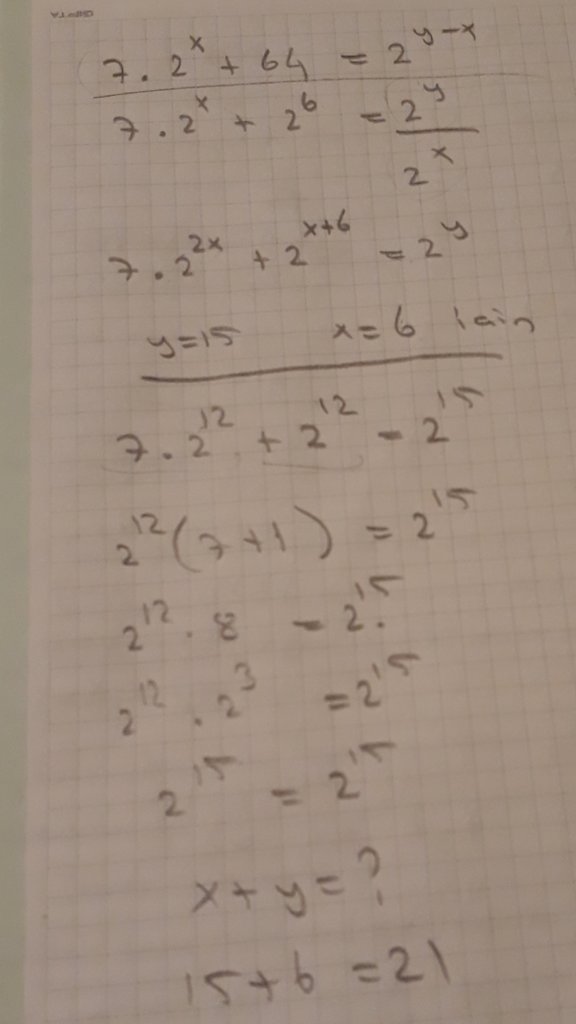 7 . 2^x + 64 = 2^{y-x}
7 . 2^x + 2^6 = 2^y / 2^x
7 . 2^{2x} + 2^{x+6} = 2^y
y=15 x=6 için
7 . 2^{12} + 2^{12} = 2^{15}
2^{12} (7+1) = 2^{15}
2^{12} . 8 = 2^{15} .
2^{12} . 2^3 = 2^{15}
2^{15} = 2^{15}
x+y=?
15+6 =21